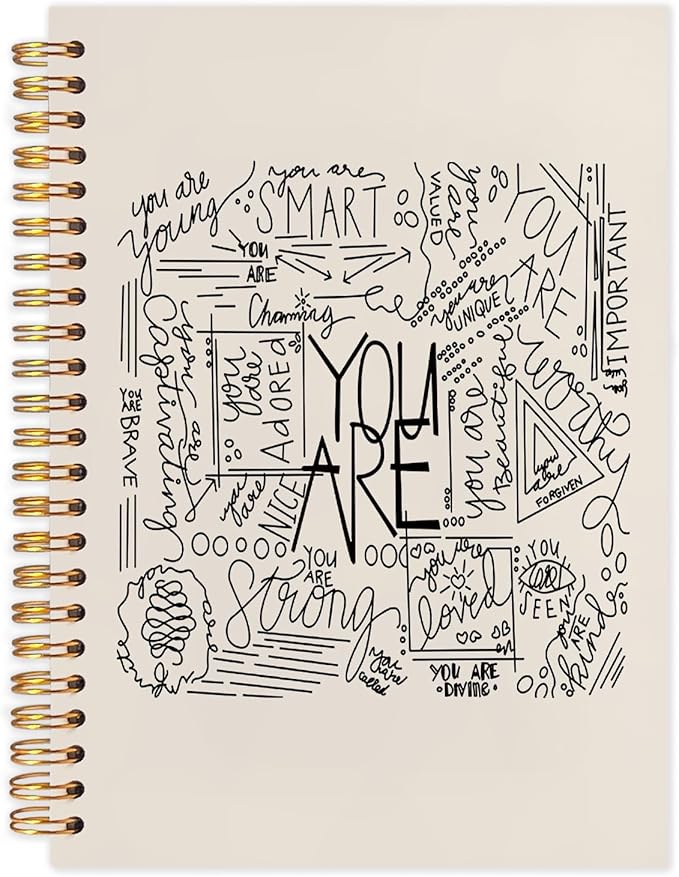 you are
young
you are
SMART
YOU
ARE
Charming
you are
VALUED
you are
UNIQUE
YOU
ARE
worthy
you are
IMPORTANT
you are
Captivating
you are
ADORED
YOU
ARE
you are
Beautiful
you are
FORGIVEN
YOU
ARE
BRAVE
you are
NICE
YOU
ARE
Strong
you are
loved
YOU
ARE
SEEN
you
ARE
kind
you
are
called
YOU ARE
DIVINE